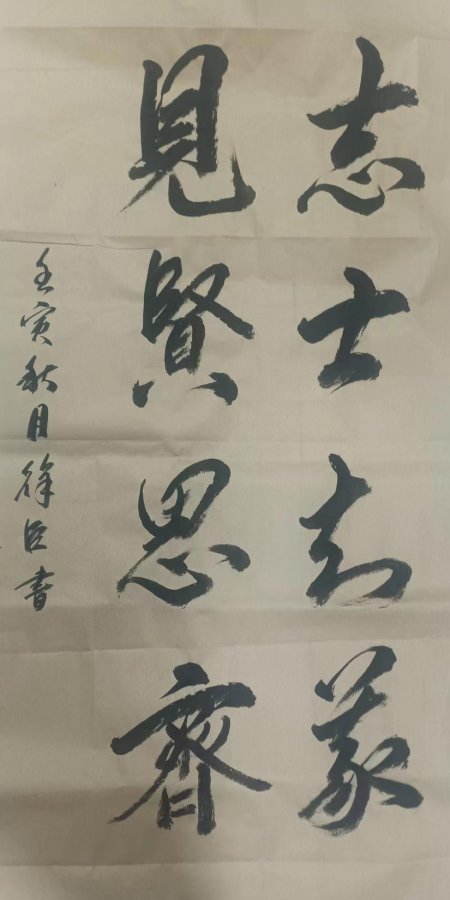 志士
見賢思齊
壬寅秋月徐臣書